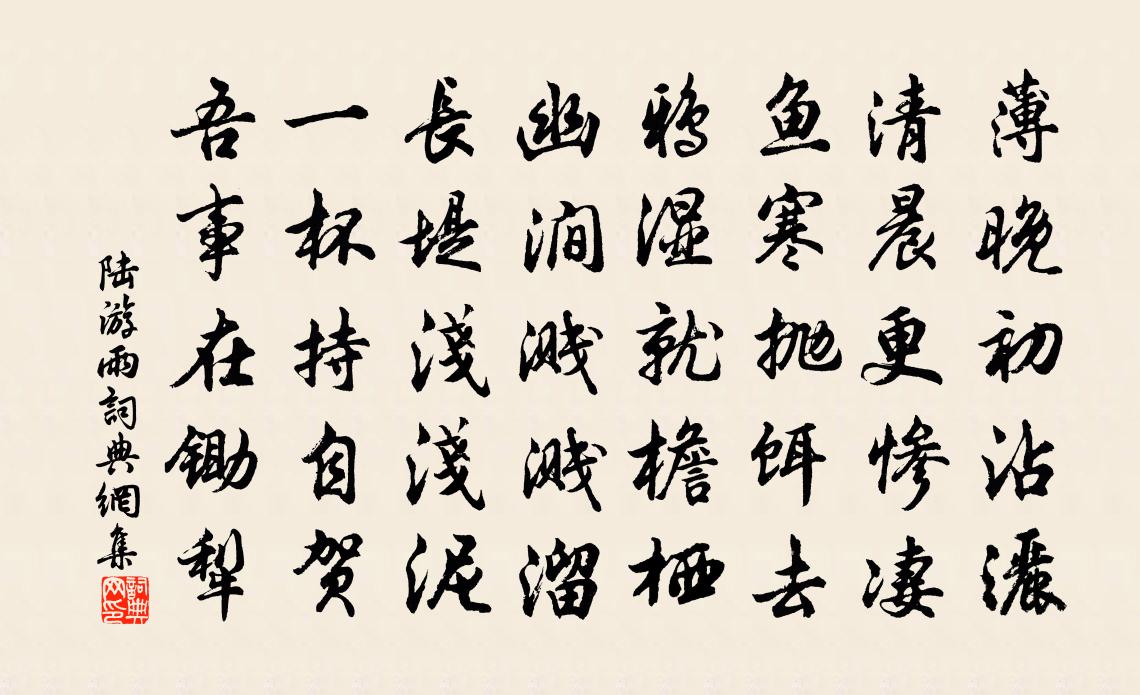 薄晚初沾灑
清晨更慘凄
魚寒拋餌去
鴉湿就檐栖
幽澗濺濺溜
長堤淺淺泥
一杯持自贺
吾事在鋤犁
陆游雨詞典網集
詞典网印